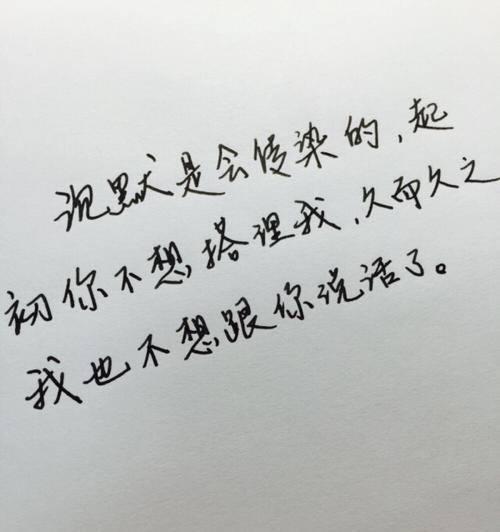 沉默是会传染的，起
初你不想搭理我，久而久之
我也不想跟你说话了。